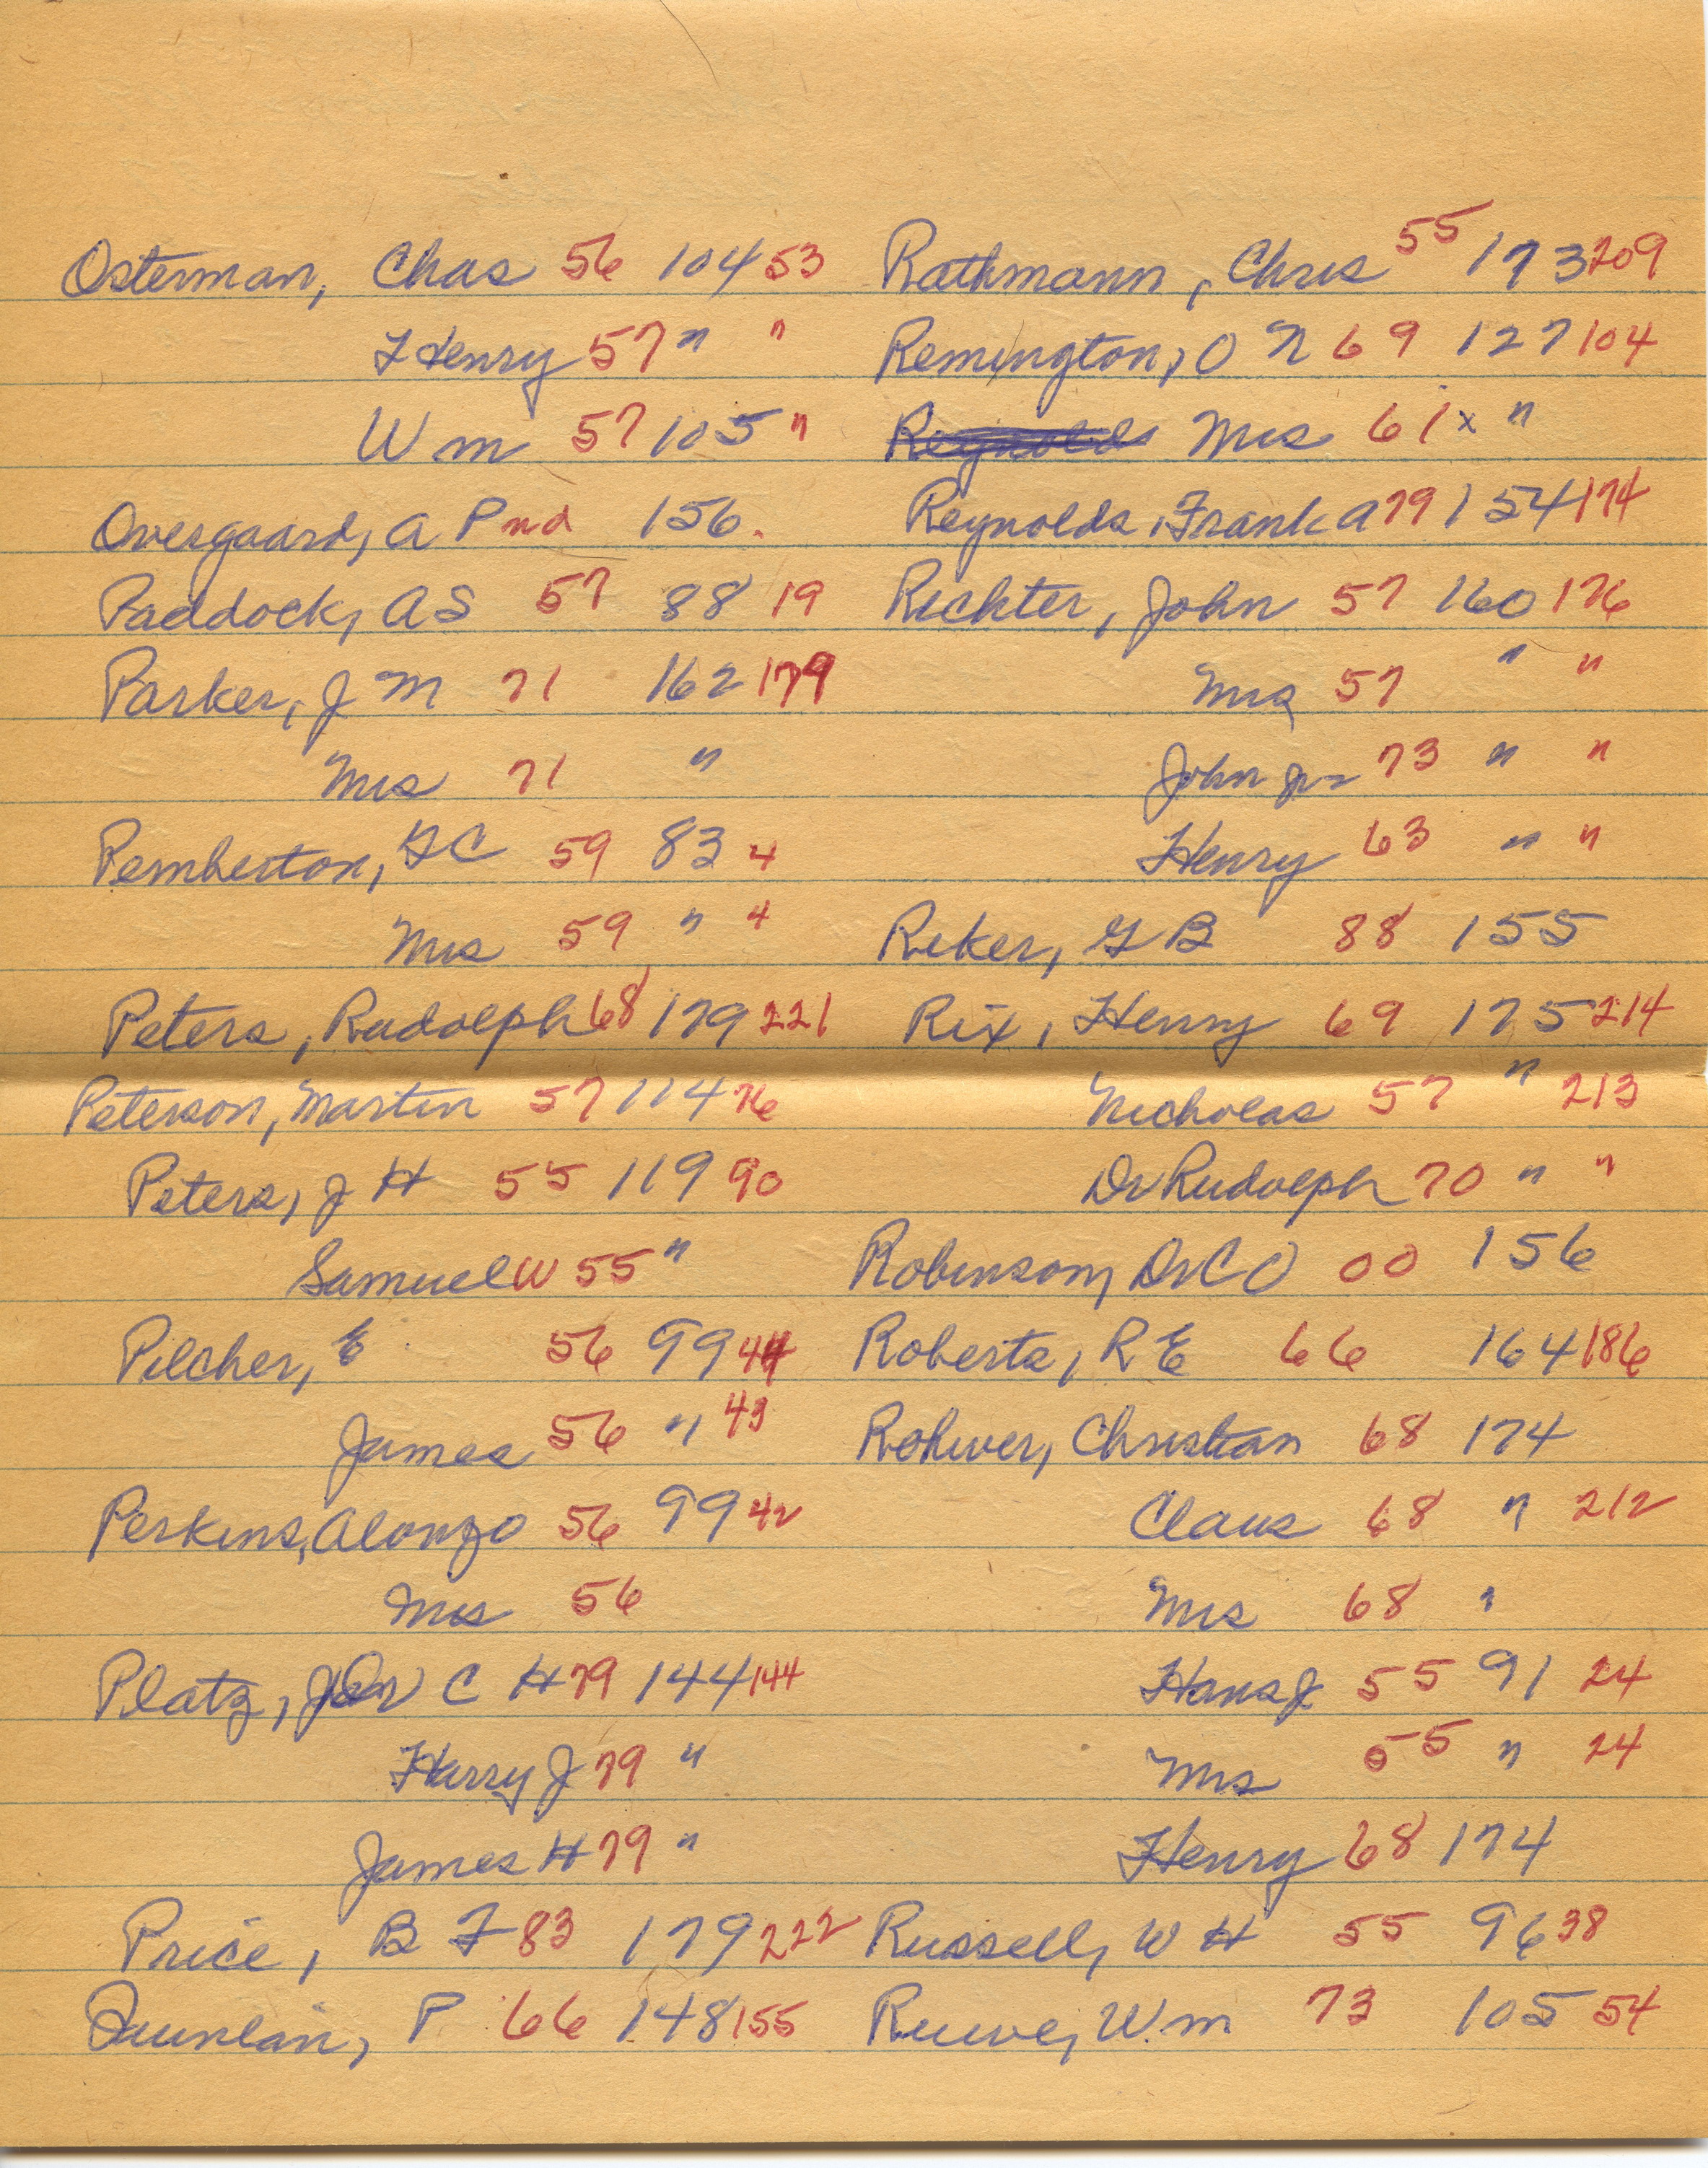 Osterman, Chas 56 104 53
Henry 57 " "
Wm 57 105 "
Ovesgaard, A P nd 156.
Paddock, A S 57 88 19
Parker, J M 71 162 179
Mrs 71 "
Pemberton, G C 59 83 4
Mrs 59 " 4
Peters, Rudolph 68 179 221
Peterson, Martin 57 114 76
Peters, J H 55 119 90
Samuel W 55 "
Pilcher, E 56 99 44
James 56 " 43
Perkins, Alonzo 56 99 42
Mrs 56
Platz, Dr C H 79 144 144
Harry J 79 "
James H 79 "
Price, B F 83 179 222
Quinlan, P 66 148 155
Rathmann, Chris 55 173 209
Remington, O N 69 127 104
Reynolds Mrs 61 x "
Reynolds, Frank A 79 154 174
Richter, John 57 160 176
Mrs 57 " "
John Jr 73 " "
Henry 63 " "
Reker, G B 88 155
Rix, Henry 69 175 214
Nicholas 57 " 213
Dr Rudolph 70 " "
Robinson, Dr C O 00 156
Roberts, R E 66 164 186
Rohwer, Christian 68 174
Claus 68 " 212
Mrs 68 "
Hans J 55 91 24
Mrs 55 " 24
Henry 68 174
Russell, W H 55 96 38
Ruwe, Wm 73 105 54